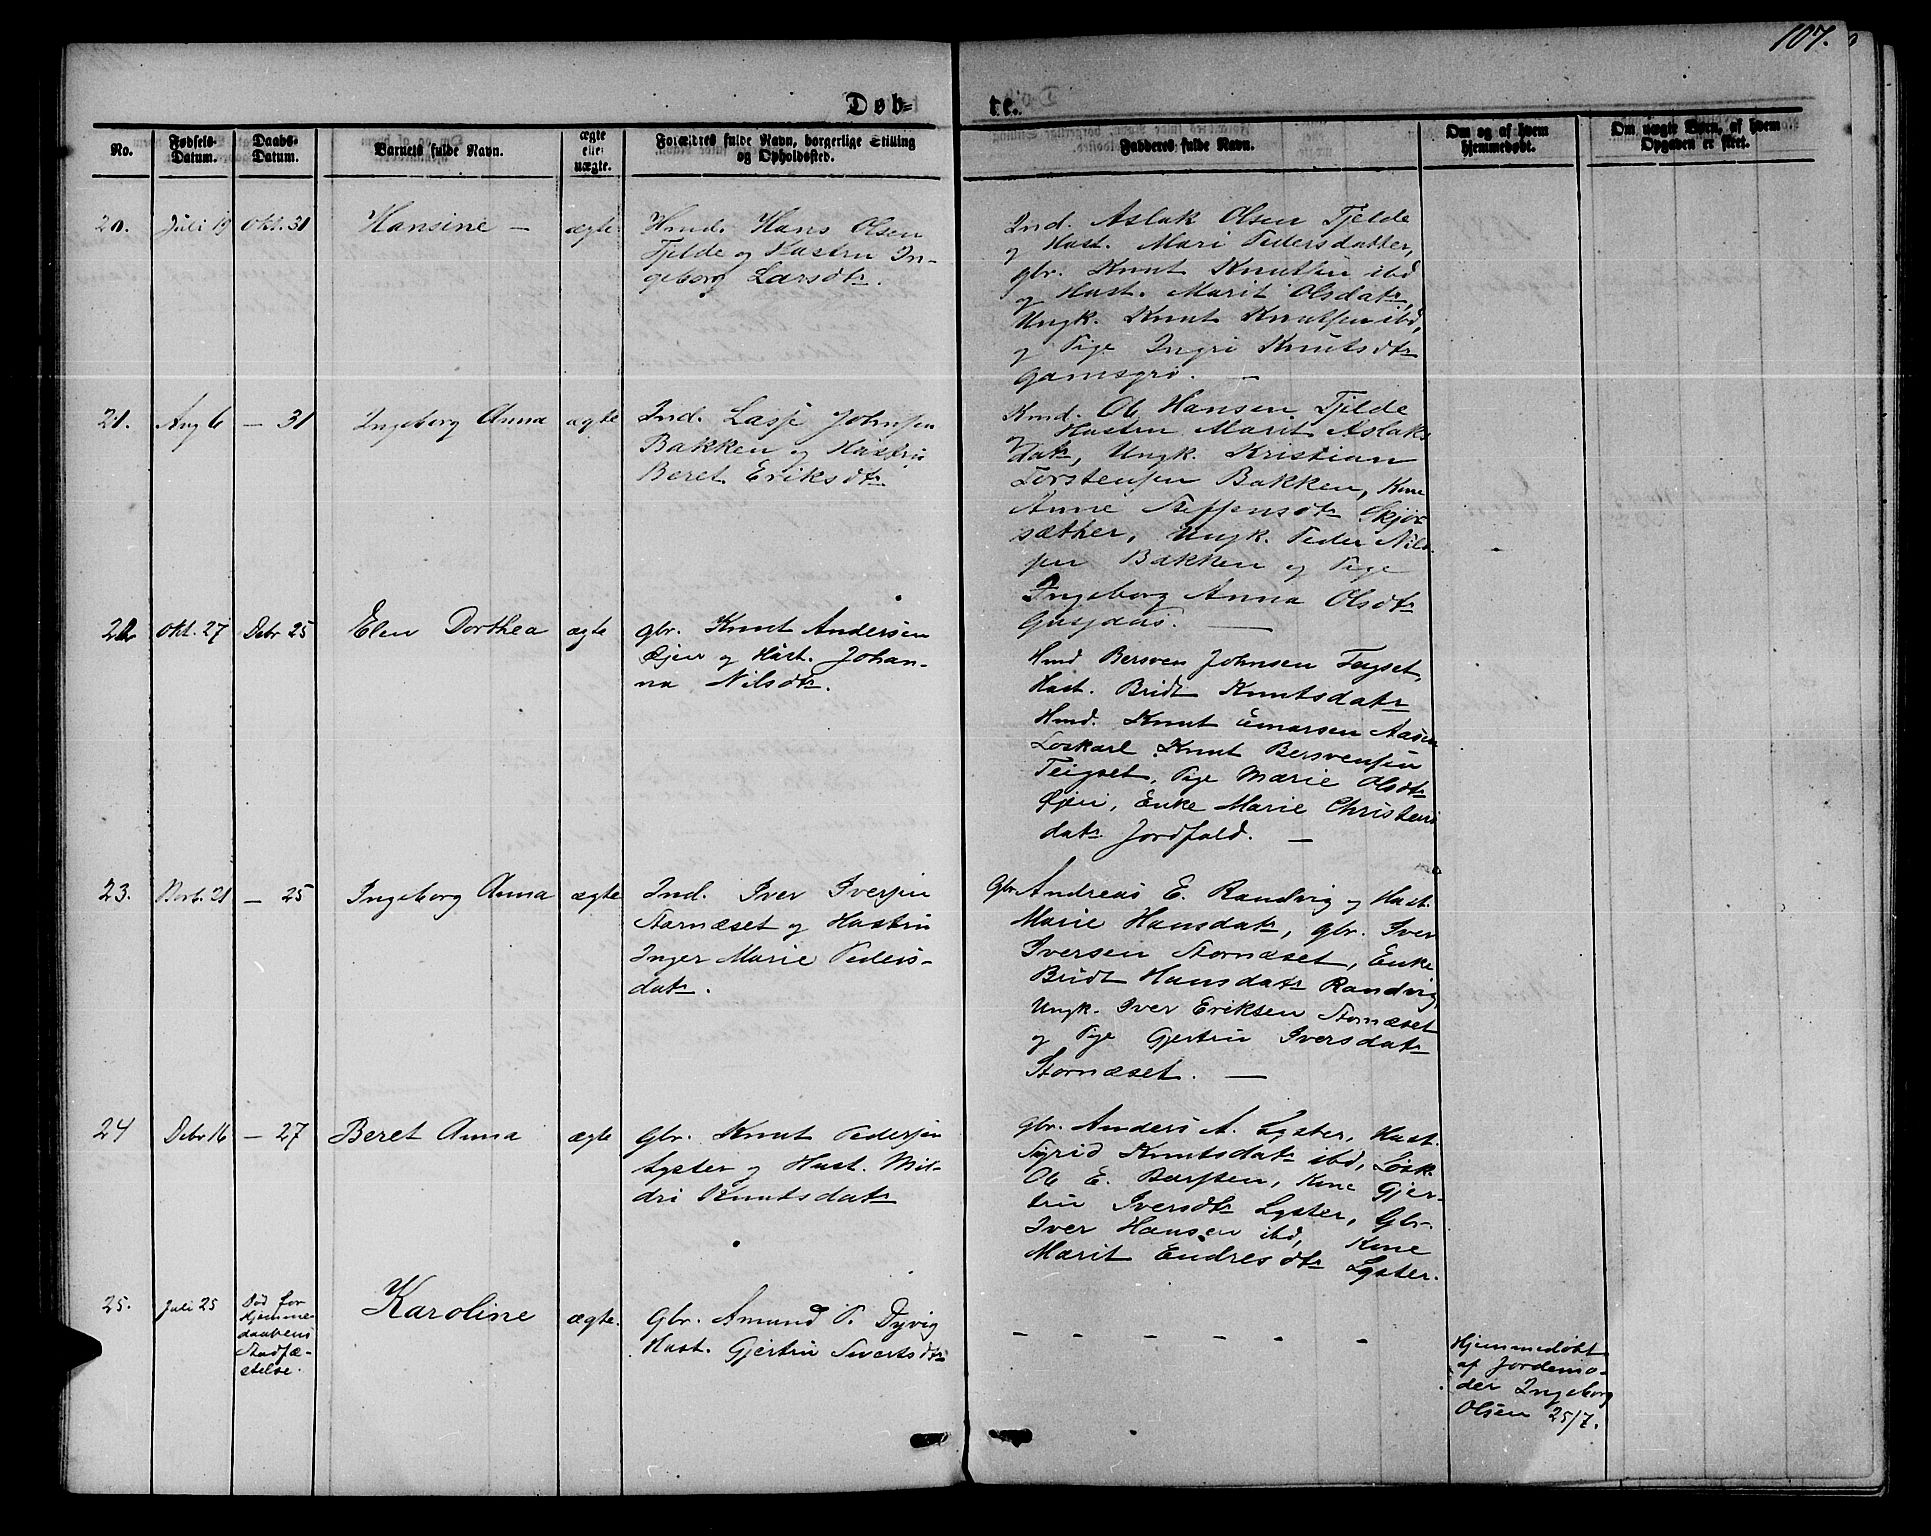 107.
Døb=
te.
No.
Fødsels-
Datum.
Daabs-
Datum.
Barnets fulde Navn.
ægte
eller
uægte.
Forældres fulde Navn, borgerlige Stilling
og Opholdssted.
Fadderes fulde Navn.
Om og af hvem
hjemmedøbt.
Om uægte Børn, af hvem
Opgaven er skeet.
20.
Juli 19
Okt. 31
Hansine —
ægte
Hmd. Hans Olsen
Tjelde og Hustru In-
geborg Larsdtr.
Ind. Aslak Olsen Tjelde
og Hust. Mari Pedersdatter,
gbr. Knut Knutsen ibd
og Hust. Marit Olsdatr,
Ungk. Knut Knutsen ibd,
og Pige Ingri Knutsdtr
21.
Aug 6
— 31
Ingeborg Anna
ægte
Ind. Lasse Johnsen
Bakken og Hustru
Beret Eriksdtr.
Kmd. Ole Hansen Tjelde
og Hustru Marit Aslaks
datr, Ungk. Kristian
Torstensen Bakken, Kone
Anne Steffensdtr Skjør-
sæther, Ungk. Peder Nils-
sen Bakken og Pige
Ingeborg Anna Olsdtr
22
Okt. 27
Debr 25
Elen Dorthea
ægte
gbr. Knut Andersen
Øjen og Hust. Johan-
na Nilsdtr.
Hmd Bersven Johnsen Teigset,
Hust. Bridt Knutsdatr
Hmd. Knut Einarsen Aasen
Løskarl Knut Bersvensen
Teigset, Pige Marie Olsdtr
Øjen, Enke Marie Christens
datr. Jordfald. —
23.
Novb. 21
— 25
Ingeborg Anna
ægte
Ind. Iver Iversen
Stornæset og Hustru
Inger Marie Peders-
datr.
Gbr. Andreas E. Randvig og Hust.
Marie Hansdatr, gbr. Iver
Iversen Stornæset, Enke
Bridt Hansdatr Randvig,
Ungk. Iver Eriksen Stornæset
og Pige Gjertru Iversdatr
Stornæset. —
24
Debr 16
— 27
Beret Anna
ægte
Gbr. Knut Pedersen
Lyster og Hust. Mil-
dri Knutsdatr
Gbr. Anders A. Lyster, Hust.
Sigrid Knutsdatr ibd, Løsk.
Ole E. Barsten, Kone Gjer-
tru Iversdtr Lyster, Gbr.
Iver Hansen ibd, Kone
Marit Endresdtr Lyster.
25.
Juli 25
Død før
Hjemme-
daabens
Stadfæ-
stelse.
Karoline
ægte.
Gbr. Amund P. Dyvig
Hust. Gjertru Sivertsdtr
— — — — — —
Hjemmedøbt
af Jordemo-
der Ingeborg
Olsen 25/7.